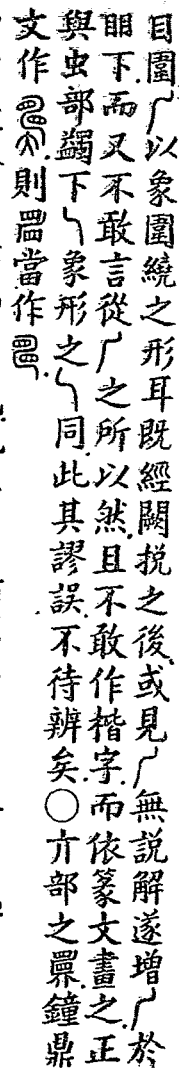 目圍𠂆以象圍繞之形耳既經闕挩之後或見𠂆無說解遂增𠂆於
䀠下而又不敢言從𠂆之所以然且不敢作楷字而依篆文畫之正
與虫部蠲下乀象形之乀同此其謬誤不待辨矣○亣部之鐘鼎
文作則當作